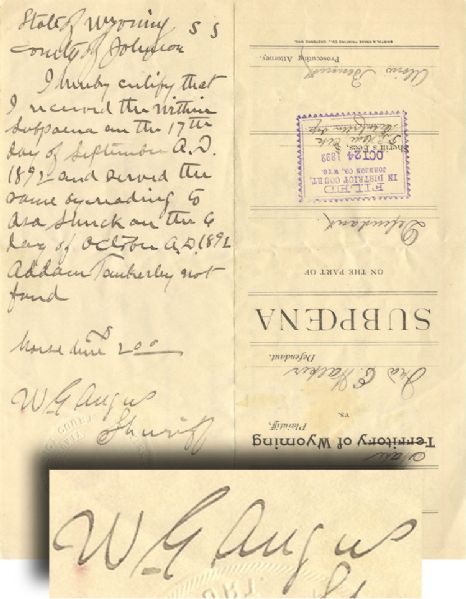 State of Wyoming
County of Johnson S S
I hereby certify that
I received the within
Subpaena on the 17th
day of September A.D.
1892 and served the
same by reading to
Asa Shuck on the 6
day of October A.D. 1892
Addam not
found
Horse hire 2 00
W G Angus
Sheriff
Territory of Wyoming
Plaintiff,
vs.
Ora E. Walker
Defendant.
SUBPŒNA
ON THE PART OF
Defendant
FILED
IN DISTRICT COURT,
JOHNSON CO. WYO.
OCT 24 1892
Sheriff's Fees,
Alvin Bennett
Prosecuting Attorney.
W G Angus